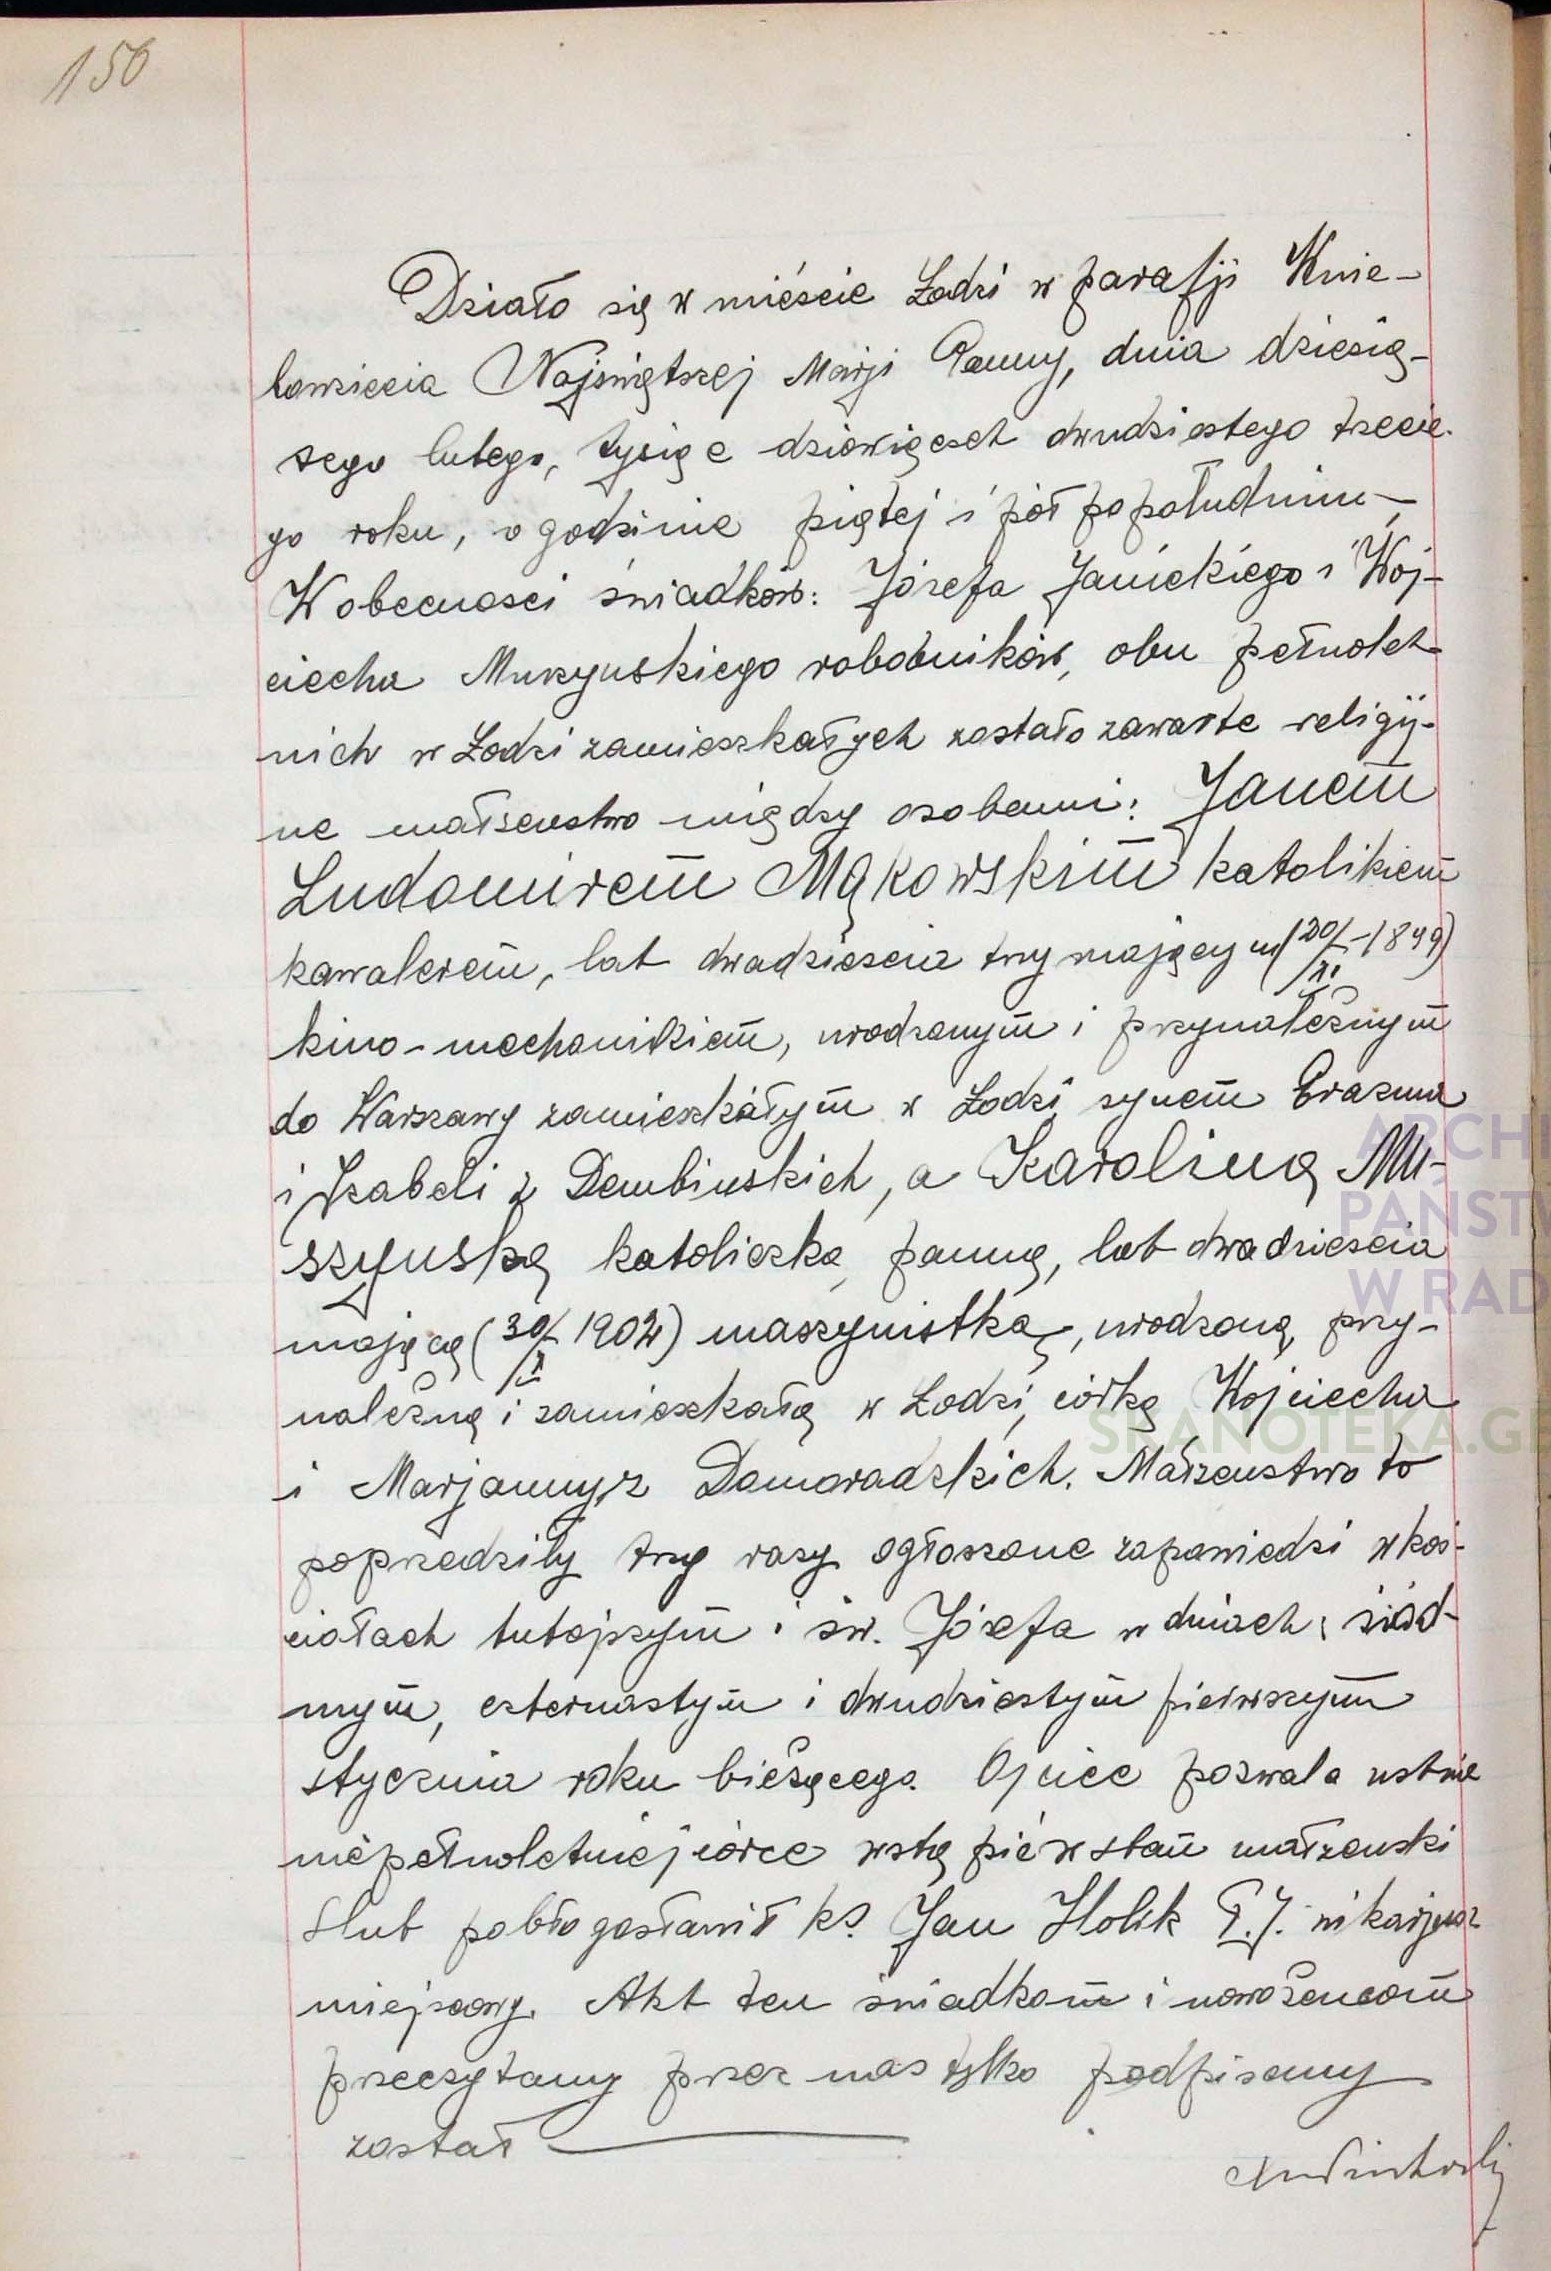 150
Działo się w mieście Łodzi w parafji Wnie-
bowzięcia Najświętszej Marji Panny, dnia dziesią-
tego lutego, tysiąc dziewięcset dwudziestego trzecie-
go roku, o godzinie piątej i pół popołudniu
W obecnosci świadków: Józefa Janickiego i Woj-
ciecha Muszyńskiego robotników, obu pełnolet-
nich w Łodzi zamieszkałych zostało zawarte religij-
ne małżenstwo między osobami: Janem
Ludomirem Mąkowskim katolikiem
kawalerem, lat dwadziescia trzy mającym (20/XI-1899)
kino-mechanikiem, urodzonym i przynależnym
do Warszawy zamieszkałym w Łodzi synem Erazma
i Izabeli z Dembinskich, a Karoliną Mu-
szynską katoliczką panną, lat dwadziescia
mającą (30/X 1902) maszynistką, urodzoną, przy-
należną i zamieszkałą w Łodzi, córką Wojciecha
i Marjanny z Domaradzkich. Małżenstwo to
poprzedziły trzy razy ogłoszone zapowiedzi w koś-
ciołach tutejszym i św. Józefa w dniach: siód-
mym, czternastym i dwudziestym pierwszym
stycznia roku bieżącego. Ojciec pozwala ustnie
niepełnoletniej córce wstąpić w stan małżenski
Slub pobłogosławił ks. Jan Holik T.J. wikarjusz
miejscowy. Akt ten świadkom i nowożencom
przeczytany przez nas tylko podpisany
został
ARCHI
PAŃSTW
W RAD
SKANOTEKA.GE